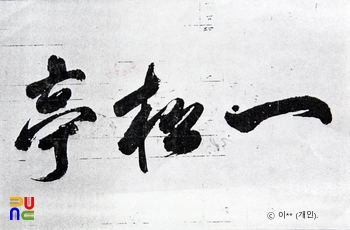 一松亭
ⓒ 이** (개인).